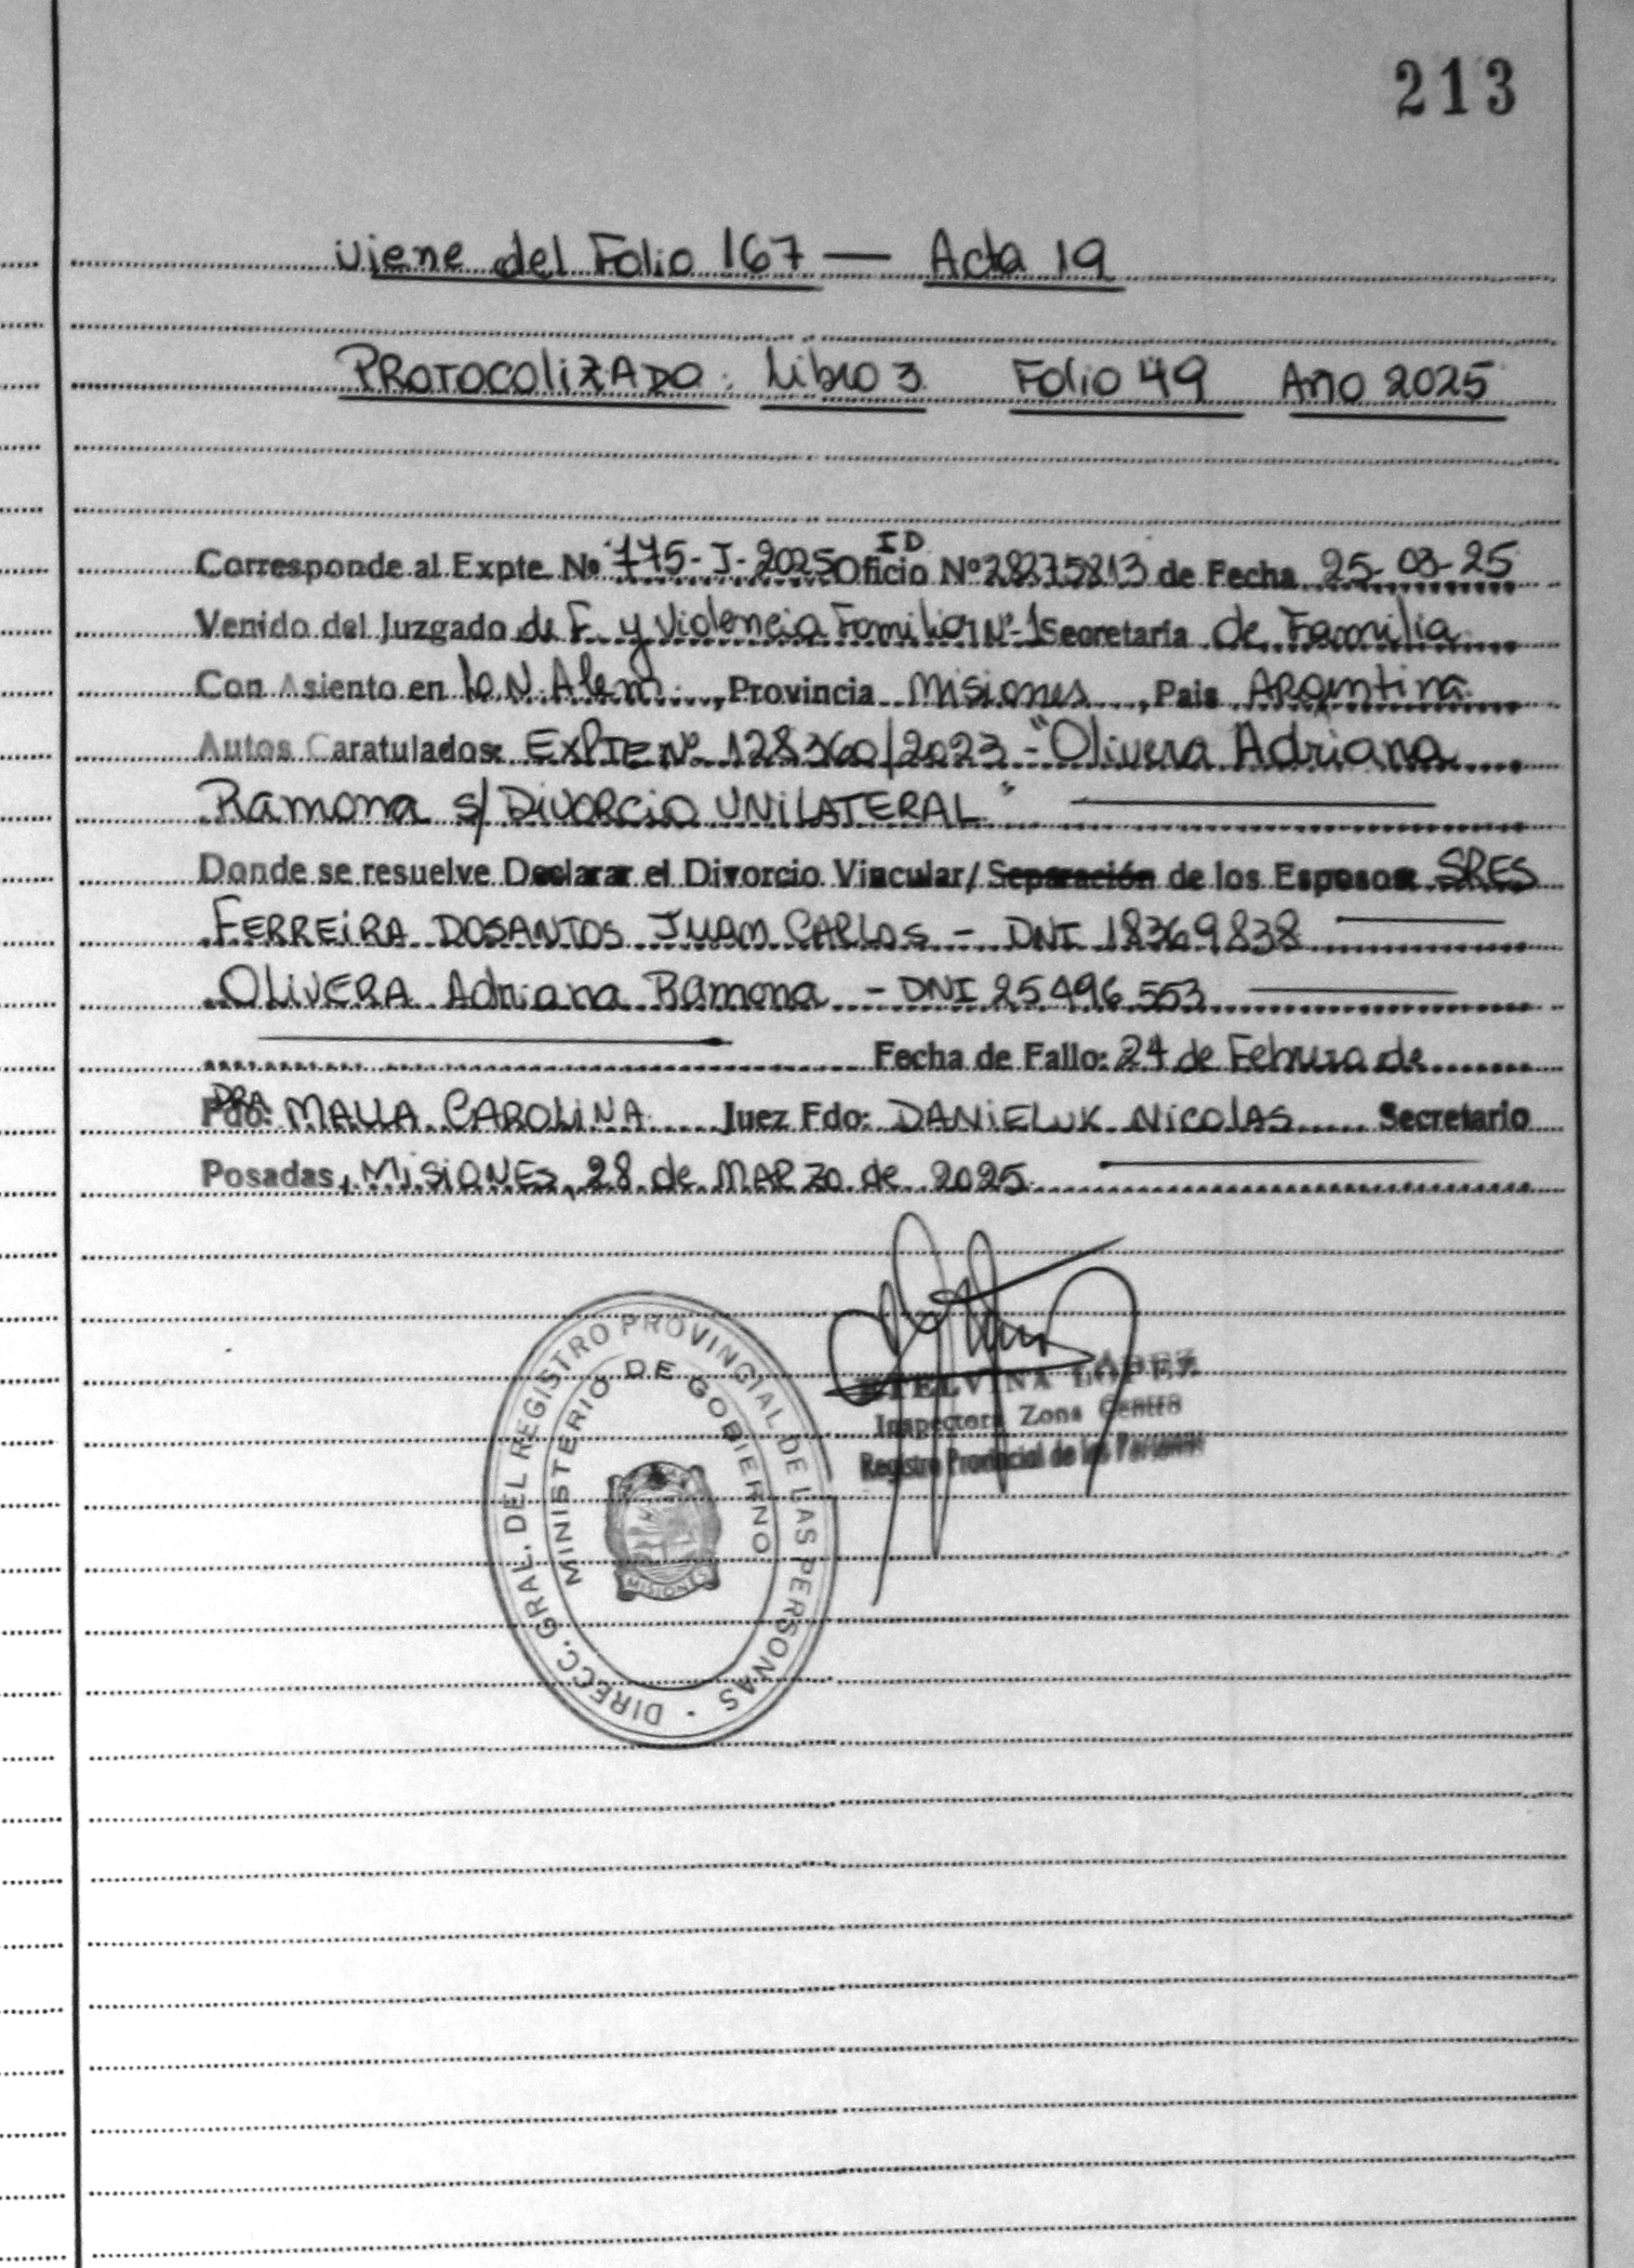 213
Viene del Folio 167 — Acta 19
PROTOCOLIZADO: Libro 3 Folio 49 Año 2025
Corresponde al Expte Nº 775-J-2025 Oficio ID Nº 28275813 de Fecha 25-03-25
Venido del Juzgado de F. y Violencia Familiar Nº 1 Secretaría de Familia
Con Asiento en L. N. Alem, Provincia Misiones, Pais ARgentina
Autos Caratulados: EXPTE Nº 128360/2023 - "Olivera Adriana
Ramona s/ DIVORCIO UNILATERAL"
Donde se resuelve Declarar el Divorcio Vincular/ Separación de los Esposos SRES
FERREIRA DOSANTOS JUAN CARLOS - DNI 18369838
OLIVERA Adriana Ramona - DNI 25496553
Fecha de Fallo: 24 de Febrero de
Fdo: DRA MALLA CAROLINA Juez Fdo: DANIELUK NICOLAS Secretario
Posadas, MISIONES, 28 de MARZO de 2025
ETELVINA LOPEZ
Inspectora Zona Centro
Registro Provincial de las Personas
DIRECC. GRAL. DEL REGISTRO PROVINCIAL DE LAS PERSONAS
MINISTERIO DE GOBIERNO
MISIONES